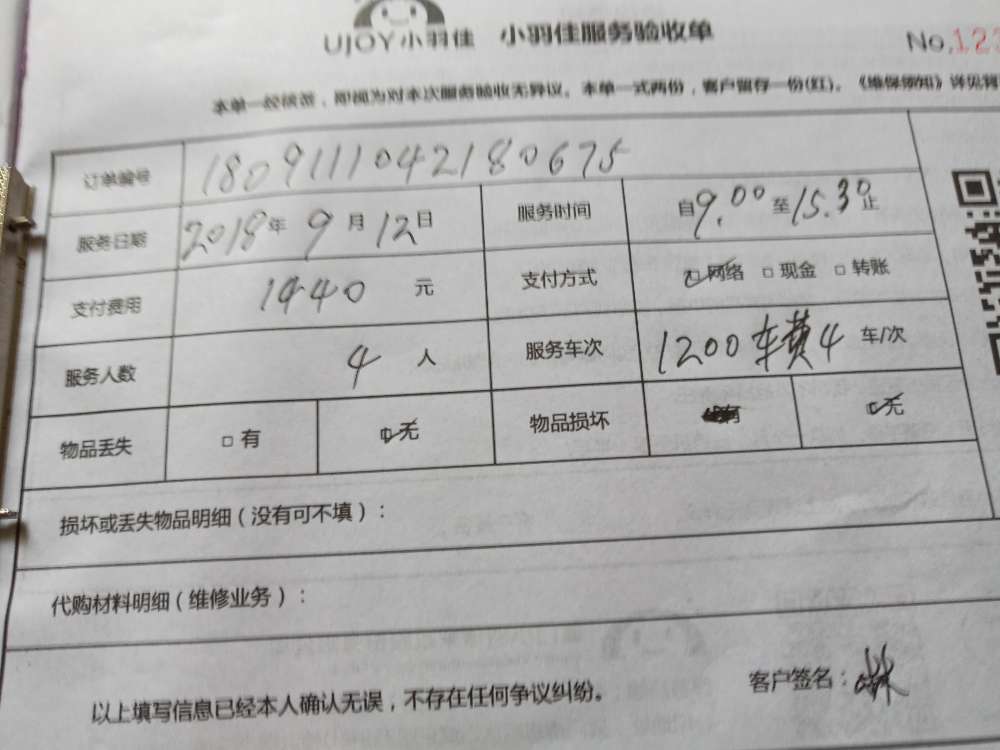 UJOY小羽佳 小羽佳服务验收单 No.123
本单一经核签，即视为对本次服务验收无异议。本单一式两份，客户留存一份(红)。《维保须知》详见背
订单编号 180911104218067５
服务日期 2018年 9月 12日 服务时间 自9.00至15.30止
支付费用 1440 元 支付方式 网络 □ 现金 □ 转账
服务人数 4 人 服务车次 1200车费4 车/次
物品丢失 □ 有 无 物品损坏 无
损坏或丢失物品明细（没有可不填）：
代购材料明细（维修业务）：
以上填写信息已经本人确认无误，不存在任何争议纠纷。 客户签名：